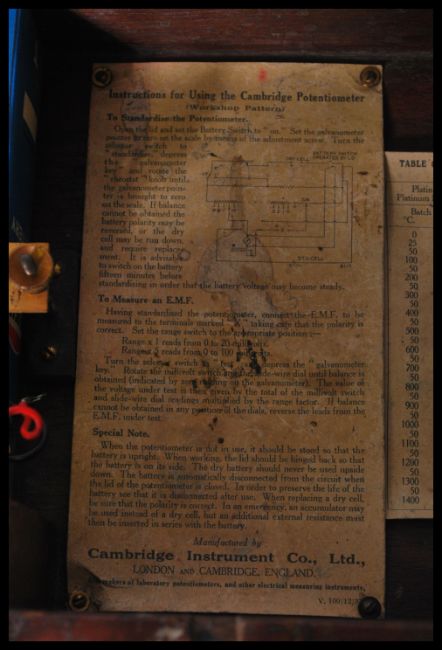 Instructions for Using the Cambridge Potentiometer
(Workshop Pattern)
To Standardise the Potentiometer.
Open the lid and set the Battery Switch to "on." Set the galvanometer
pointer to zero on the scale by means of the adjustment screw. Turn the
selector switch to
"standardise," depress
the "galvanometer
key" and rotate the
"rheostat" knob until
the galvanometer poin-
ter is brought to zero
on the scale. If balance
cannot be obtained the
battery polarity may be
reversed, or the dry
cell may be run down,
and require replace-
ment. It is advisable
to switch on the battery
fifteen minutes before
standardising in order that the battery voltage may become steady.
DRY CELL
BATTERY SWITCH
OPERATED BY LID
STD. CELL
To Measure an E.M.F.
Having standardised the potentiometer, connect the E.M.F. to be
measured to the terminals marked taking care that the polarity is
correct. Set the range switch to the appropriate position :—
Range x 1 reads from 0 to 20 millivolts.
Range x 5 reads from 0 to 100
Turn the selector switch to depress the "galvanometer
key." Rotate the millivolt switch and slide-wire dial until balance is
obtained (indicated by zero reading on the galvanometer). The value of
the voltage under test is then given by the total of the millivolt switch
and slide-wire dial readings multiplied by the range factor. If balance
cannot be obtained in any position of the dials, reverse the leads from the
E.M.F. under test.
Special Note.
When the potentiometer is not in use, it should be stood so that the
battery is upright. When working, the lid should be hinged back so that
the battery is on its side. The dry battery should never be used upside
down. The battery is automatically disconnected from the circuit when
the lid of the potentiometer is closed. In order to preserve the life of the
battery see that it is disconnected after use. When replacing a dry cell,
be sure that the polarity is correct. In an emergency, an accumulator may
be used instead of a dry cell, but an additional external resistance must
then be inserted in series with the battery.
Manufactured by
Cambridge Instrument Co., Ltd.,
LONDON AND CAMBRIDGE, ENGLAND.
makers of laboratory potentiometers, and other electrical measuring instruments.
TABLE
Platin
Platinum
Batch
°C.
0
25
50
100
50
200
50
300
50
400
50
500
50
600
50
700
50
800
50
900
50
1000
50
1100
50
1200
50
1300
50
1400